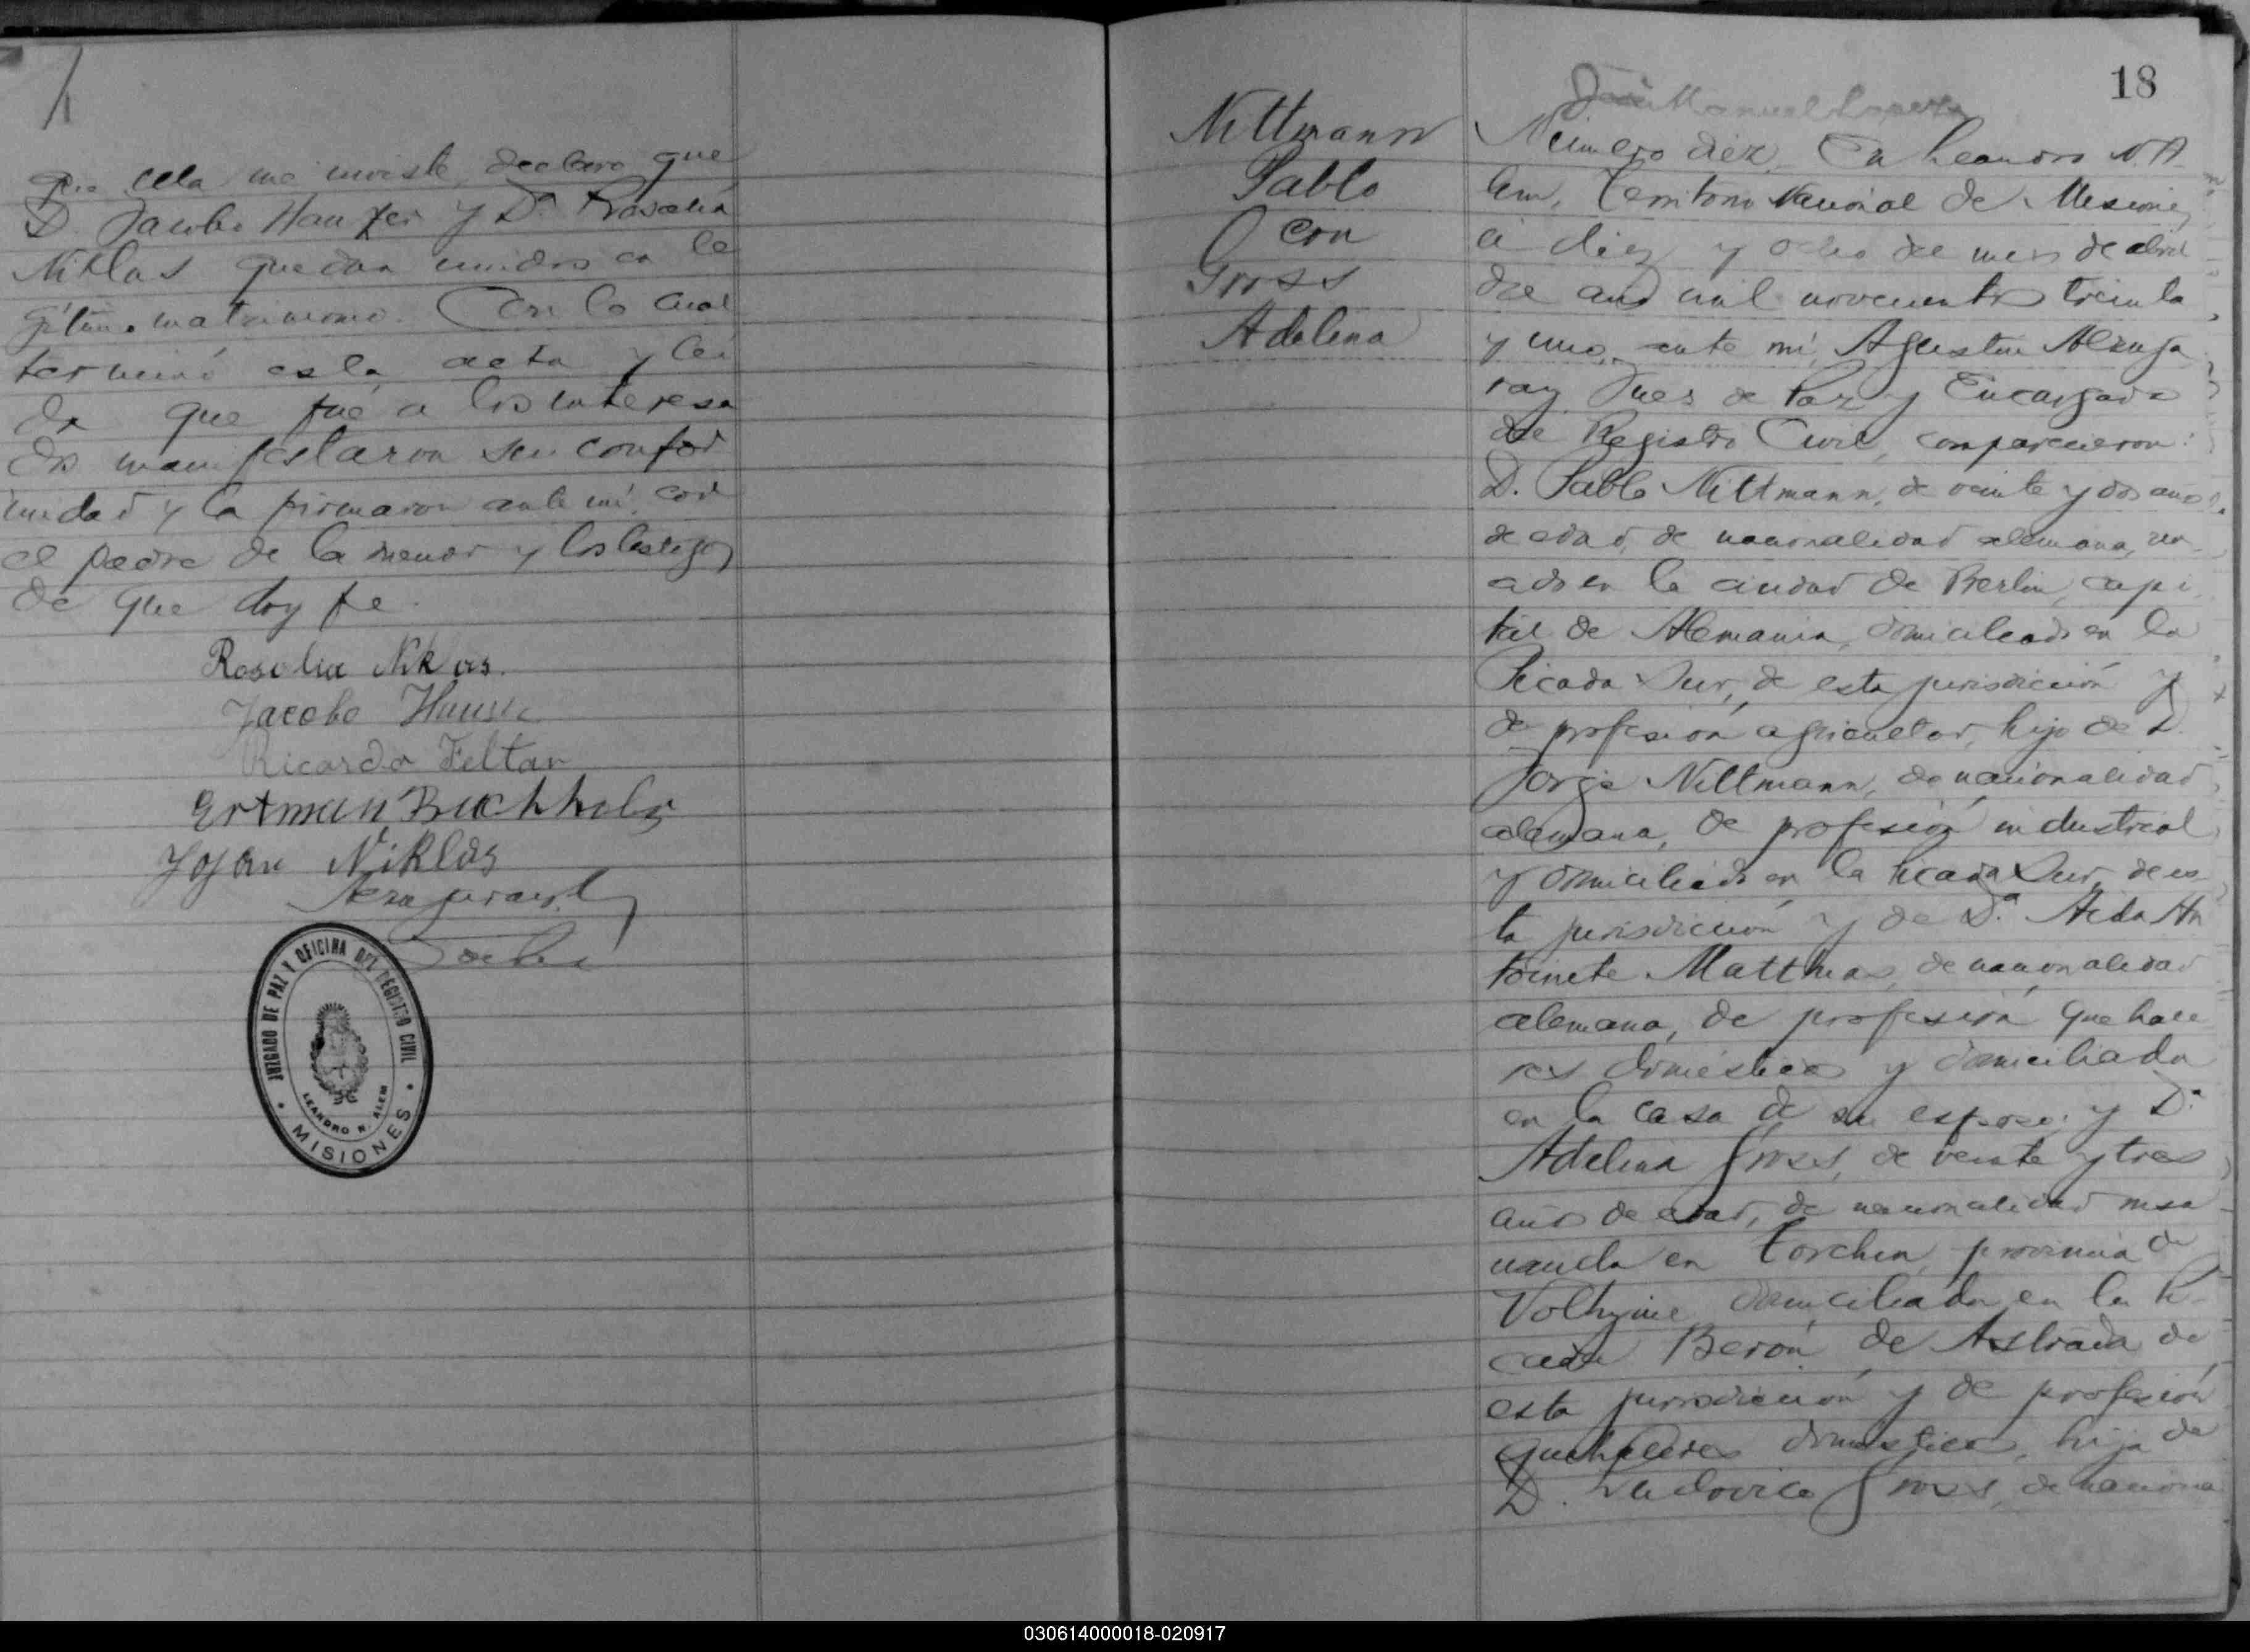 que ella me inviste, declaro que
D. Jacobo Hauser y Da. Rosalia
Niklas quedan unidos en le
gítimo matrimonio. Con lo cual
terminó esta acta y leí
da que fué a los interesa
dos manifestaron su confor
midad y la firmaron ante mí, con
el padre de la menor y los testigos
de que doy fe.
Rosolia Niklas.
Jacobo Hauser
Ricardo Feltan
Ertman Buchholz
Johan Niklas
JUZGADO DE PAZ Y OFICINA DEL REGISTRO CIVIL
LEANDRO N. ALEM
MISIONES
18
Nittmann
Pablo
con
Gross
Adelina
José Manuel
Número diez. En Leandro N. A
lem, Territorio Nacional de Misiones
a diez y ocho del mes de abril
del año mil novecientos treinta
y uno, ante mí, Agustin Alzuga
ray Juez de Paz y Encargado
del Registro Civil, comparecieron:
D. Pablo Nittmann, de veinte y dos años
de edad, de nacionalidad alemana, na
cido en la ciudad de Berlin, capi
tal de Alemania, domiciliado en la
Picada Sur, de esta jurisdicción y
de profesión agricultor, hijo de D.
Jorge Nittmann, de nacionalidad
alemana, de profesión industrial
y domiciliado en la Picada Sur, de es
ta jurisdicción y de Da. Aida An
toinete Matthias, de nacionalidad
alemana, de profesión quehace
res domésticos y domiciliada
en la casa de su esposo; y Da.
Adelina Gross, de veinte y tres
años de edad, de nacionalidad rusa
nacida en Torchin, provincia de
Volhynie domiciliada en la Pi
cada Berón de Astrada de
esta jurisdicción y de profesión
quehaceres domésticos, hija de
D. Ludovico Gross, de naciona